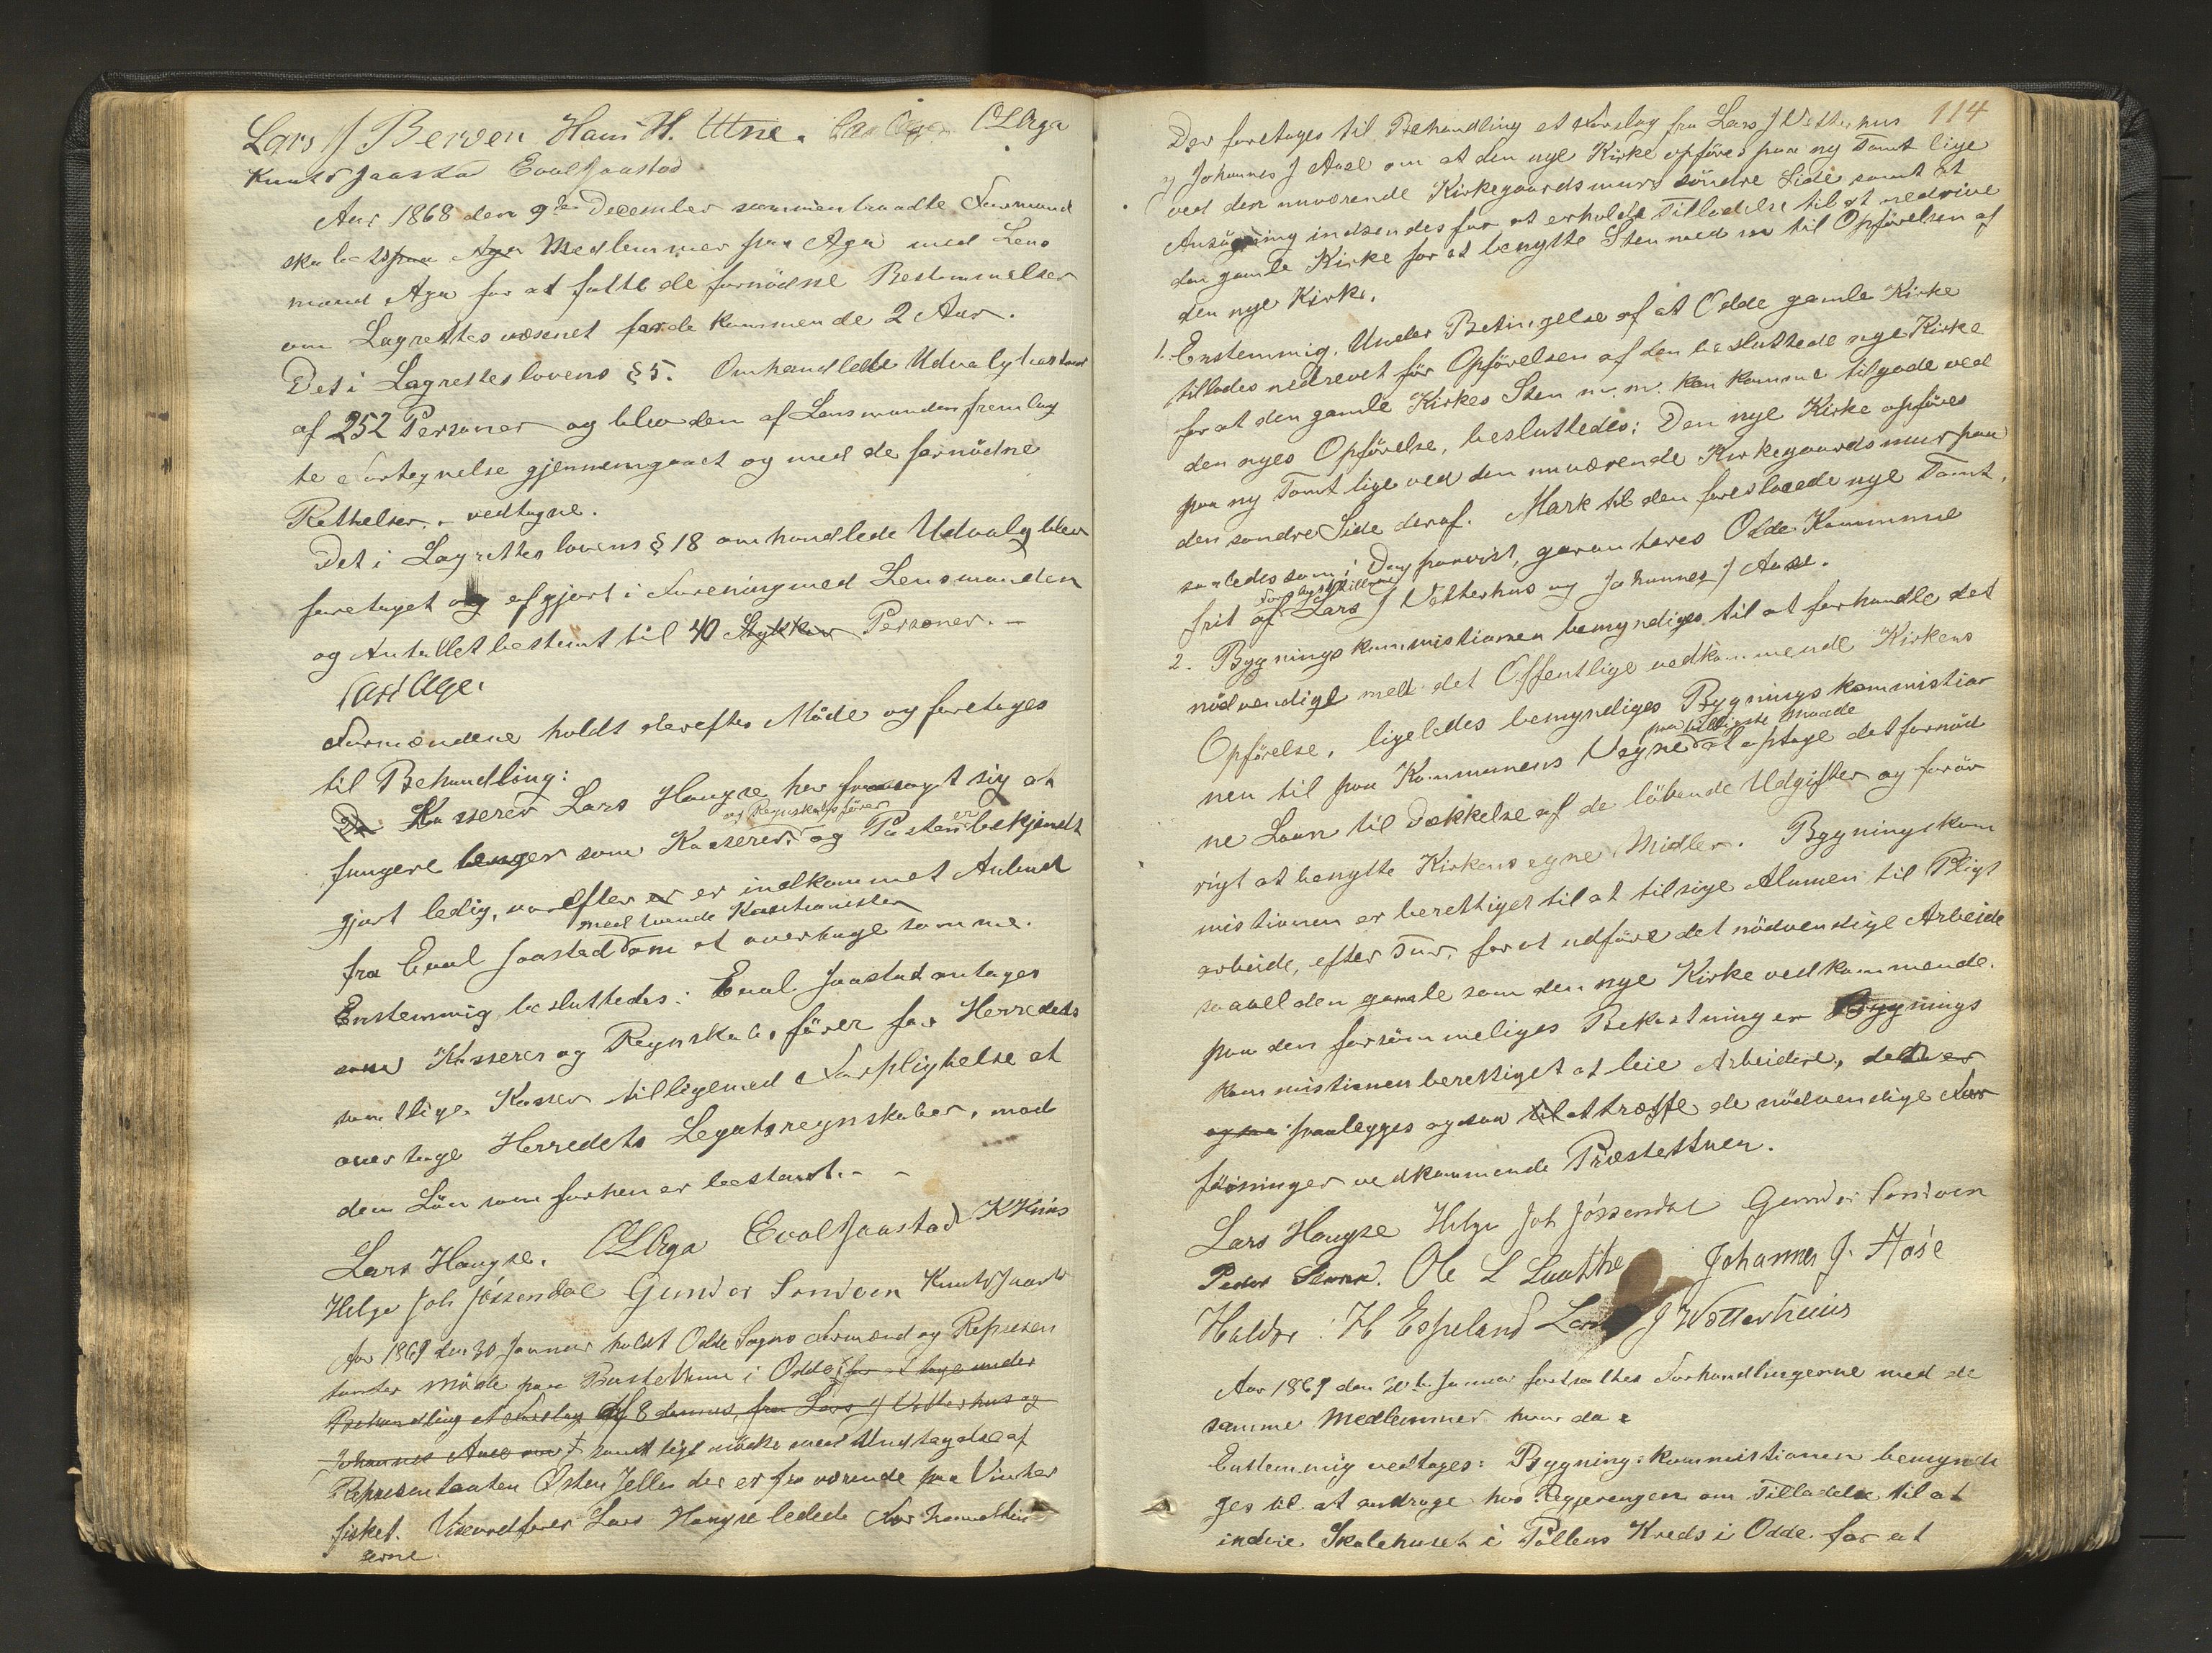 Lars J Berven Hans H. Utne. OLAga
Knut J Jaastad Eval Jaastad
Aar 1868 den 9de December sammentraadte Formand
skabets paa Aga Medlemmer paa Aga med Lens
mand Aga for at fatte de fornödne Bestemmelser
om Lagrettesvæsenet for de kommende 2 Aar.
Det i Lagretteslovens § 5. Omhandlede Udvalg bestaar
af 252 Personer og blev den af Lensmanden fremlag
te Fortegnelse gjennemgaaet og med de fornödne
Rettelser. - vedtagne.
Det i Lagretteslovens § 18 omhandlede Udvalg blev
foretaget og afgjort i Forening med Lensmanden
og Antallet bestemt til 40 Stykker Personer. -
Lars Aga.
Formændene holdt derefter Möde og foretages
til Behandling:
Da Kasserer Lars Haugse har frasagt sig at
og Regnskabsförer
fungere længer som Kasserer og Posten er bekjendt
gjort ledig, var efter er er indkommet Anbud
med tvende Kautionister
fra Eval Jaastad om at overtage samme.
Enstemmig besluttedes: Eval Jaastad antages
som Kasserer og Regnskabsförer for Herredets
samtlige Kasser tilligemed Forpligtelse at
overtage Herredets Legatsregnskaber, mod
den Lön som forhen er bestemt. - -
Lars Haugse. OLAga Eval Jaastad
Helge Joh Jössendal Gunder Sandven Knut J Jaastad
Aar 1869 den 30 Januar holdt Odde Sogns Formænd og Represen
tanter möde paa Præstestuen i Odde for at tage under
Behandling et Forslag af 8 dennes, fra Lars J Vetterhus og
Johannes Aase om samtlige mödte med Undtagelse af
Representanten Osten Jelle der er fraværende paa Vinter
fisket. Viseordförer Lars Haugse ledede Forhandlin
gerne.
114
Der foretages til Behandling et Forslag fra Lars J Vetterhus
og Johannes J Aase om at den nye Kirke opföres paa ny Tomt lige
ved den nuværende Kirkegaardsmurs söndre Side samt at
Ansögning indsendes for at erholde Tilladelse til at nedrive
den gamle Kirke for at benytte Sten med m til Opförelsen af
den nye Kirke.
1. Enstemmig. Under Betingelse af at Odde gamle Kirke
tillades nedrevet för Opförelsen af den besluttede nye Kirke
for at den gamle Kirkes Sten m. m. kan komme tilgode ved
den nyes Opförelse, besluttedes: Den nye Kirke opföres
paa ny Tomt lige ved den nuværende Kirkegaardsmur paa
den söndre Side deraf. Mark til den foreslaaede nye Tomt,
saaledes som i Dag paavist, garanteres Odde Kommune
Forslagsstillerne
frit af Lars J Vetterhus og Johannes J Aase.
2. Bygningskommistionen bemyndiges til at forhandle det
nödvendige med det Offentlige vedkommende Kirkens
Opförelse, ligeledes bemyndiges Bygningskommistio
nen til paa Kommunens Vegne
paa billigste Maade
at optage det fornöd
ne Laan til Dækkelse af de löbende Udgifter og forör
rigt at benytte Kirkens egne Midler. Bygningskom
mistionen er berettiget til at tilsige Almuen til Pligt
arbeide, efter Tur, for at udföre det nödvendige Arbeide
saavel den gamle som den nye Kirke vedkommende.
Paa den forsömmeliges Bekostning er Bygnings
kommistionen berettiget at leie Arbeidere,
og saa paalegges ogsaa til at træffe de nödvendige For
föininger vedkommende Præstestuen.
Lars Haugse Helge Joh Jössendal Gunder Sandven
Ole L Laathe Johannes J. Aase
Haldor H Espeland Lars J Wetterhuus
Aar 1869 den 30te Januar fortsattes Forhandlingerne med de
samme Medlemmer hvor da
Enstemmig vedtages: Bygningskommistionen bemyndi
ges til at andrage hos Regjeringen om Tilladelse til at
indvie Skolehuset i Tollens Kreds i Odde for at